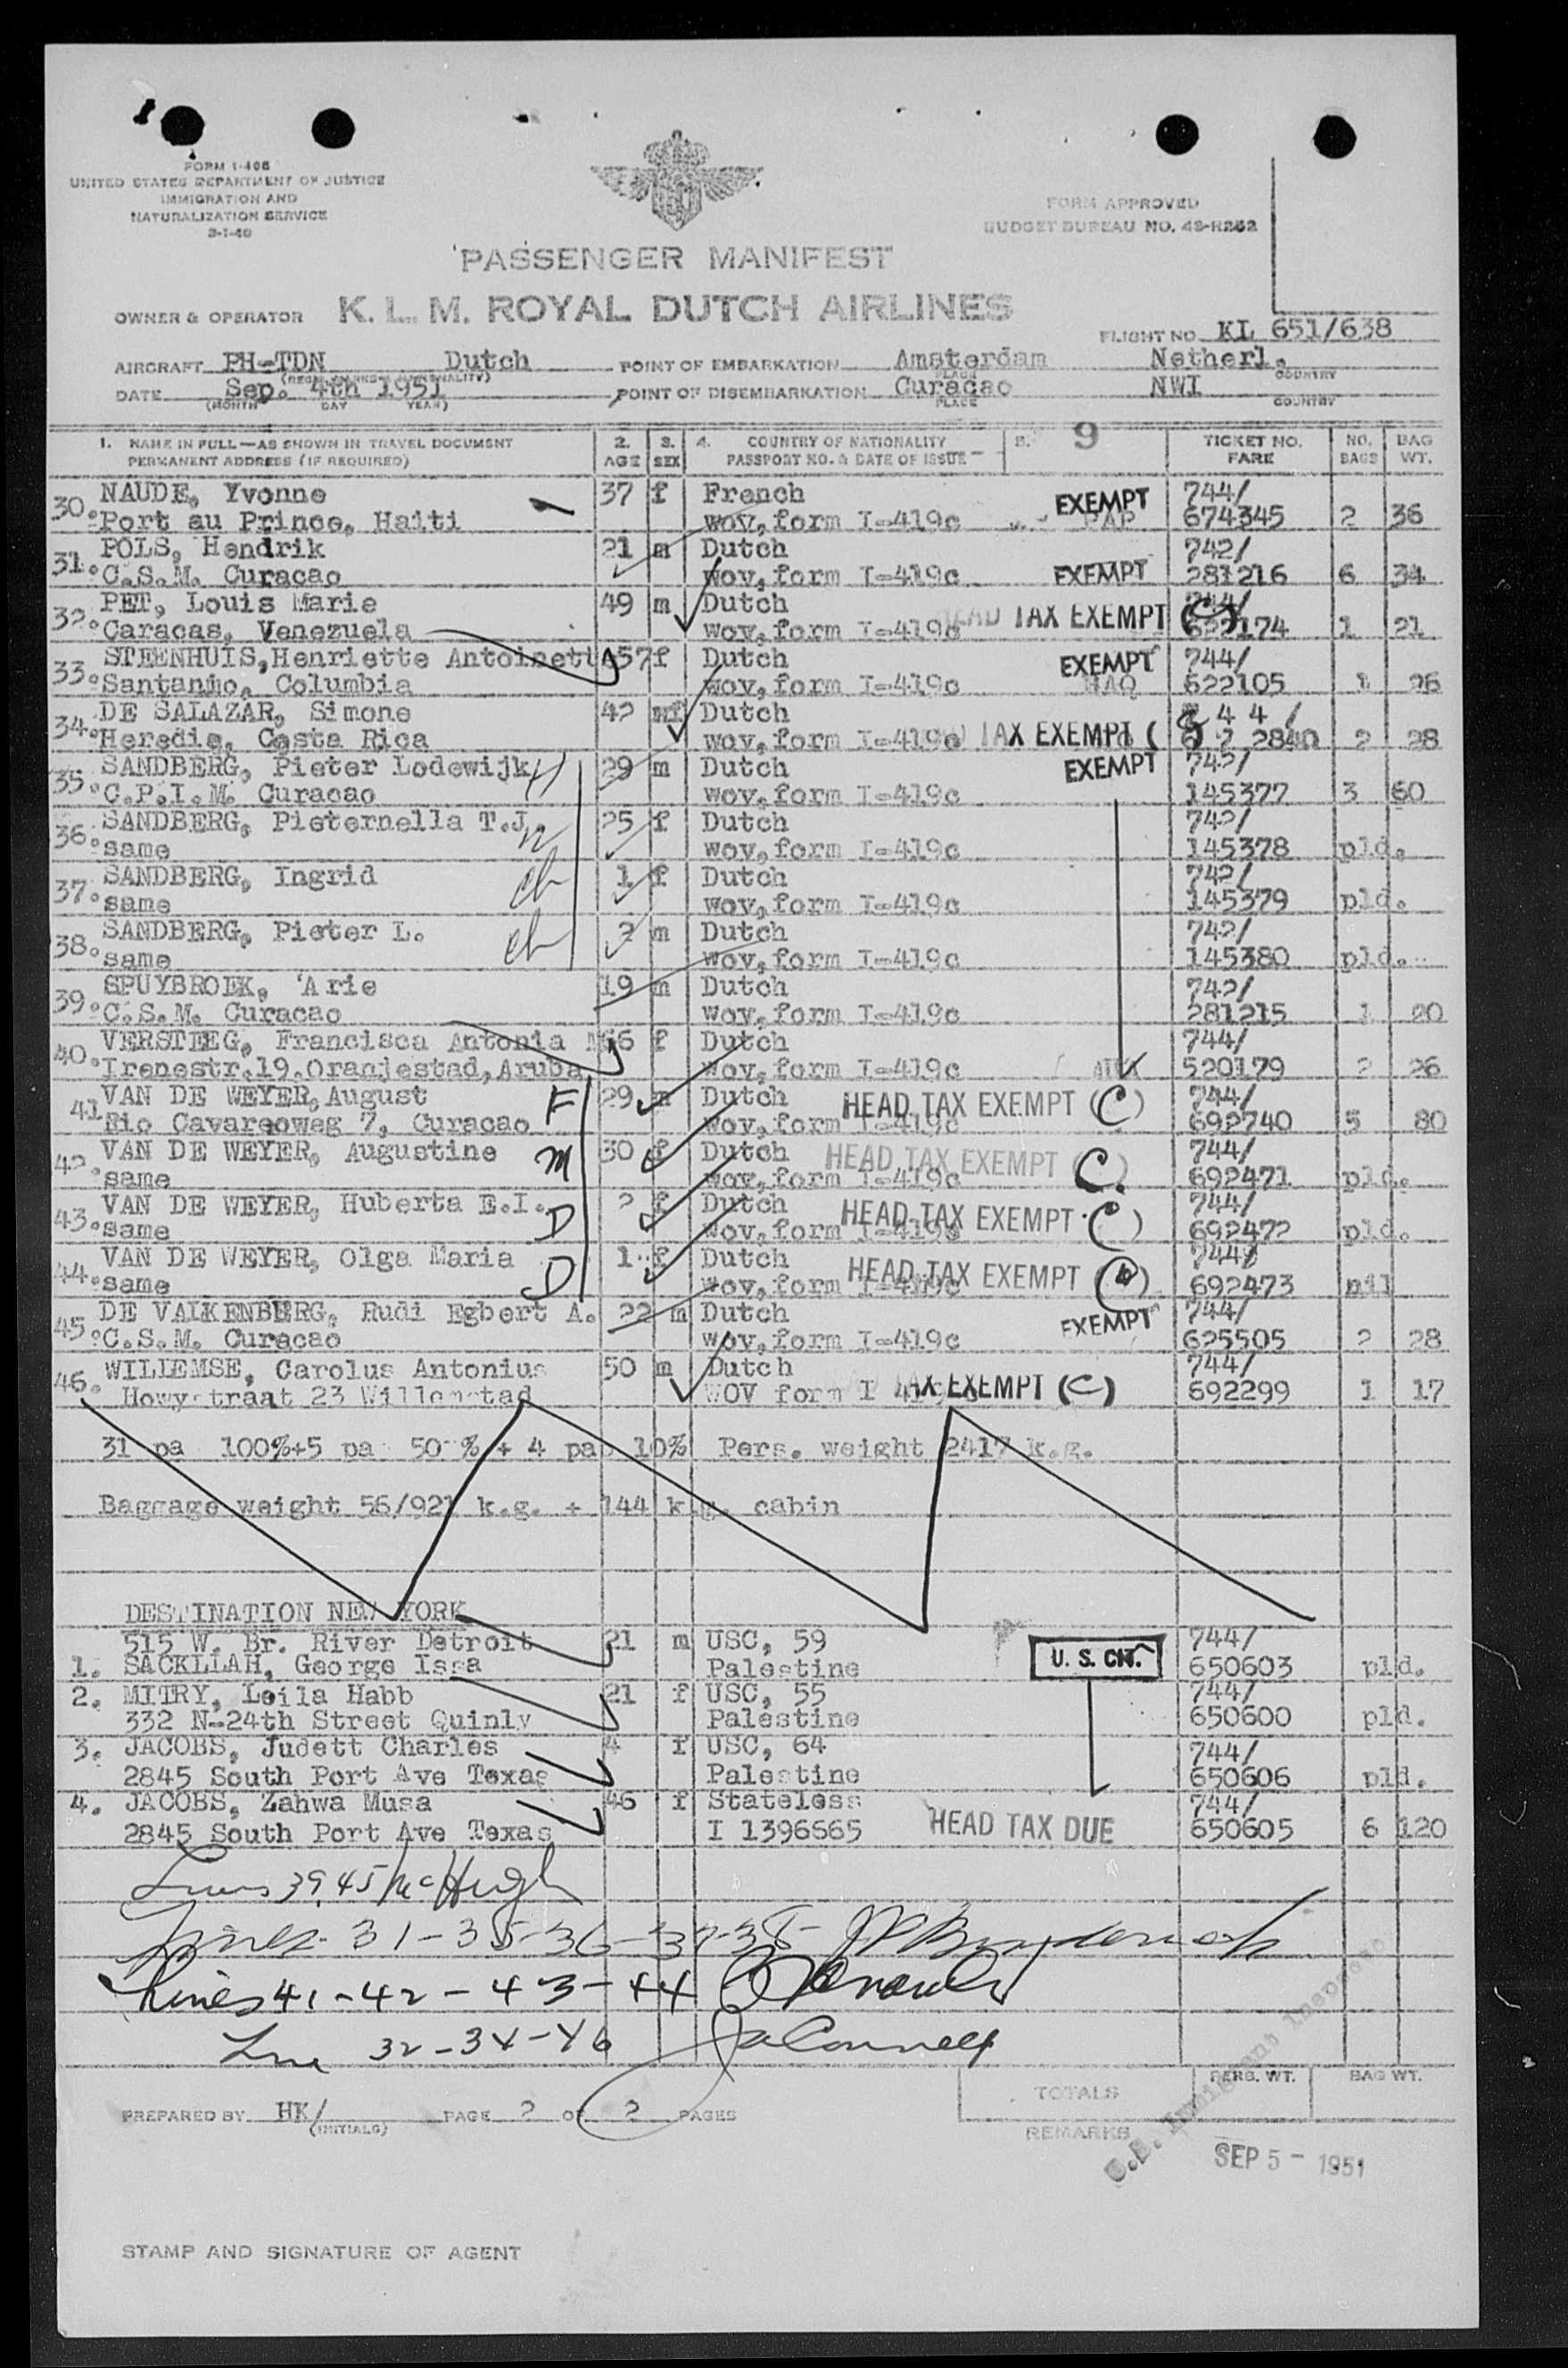 FORM I-466
UNITED STATES DEPARTMENT OF JUSTICE
IMMIGRATION AND
NATURALIZATION SERVICE
FORM APPROVED
BUDGET BUREAU NO. 43-R252
PASSENGER MANIFEST
OWNER & OPERATOR K. L. M. ROYAL DUTCH AIRLINES
FLIGHT NO. KL 651/638
AIRCRAFT PH-TDN Dutch POINT OF EMBARKATION Amsterdam Netherl.
PLACE COUNTRY
DATE Sep. 4th 1951 POINT OF DISEMBARKATION Curacao NWI
(MONTH DAY YEAR) PLACE COUNTRY
1. NAME IN FULL—AS SHOWN IN TRAVEL DOCUMENT 2. 3. 4. COUNTRY OF NATIONALITY 5. 9 TICKET NO. NO. BAG
PERMANENT ADDRESS (IF REQUIRED) AGE SEX PASSPORT NO. & DATE OF ISSUE FARE BAGS WT.
NAUDE, Yvonne 37 f French EXEMPT 744/
30. Port au Prince, Haiti wov, form I-419c PAP 674345 2 36
POLS, Hendrik 21 m Dutch 742/
31. C.S.M. Curacao wov, form I-419c EXEMPT 281216 6 34
PET, Louis Marie 49 m Dutch HEAD TAX EXEMPT (C) 744/
32. Caracas, Venezuela wov, form I-419c 622174 1 21
STEENHUIS, Henriette Antoinett 57 f Dutch EXEMPT 744/
33. Columbia wov, form I-419c 622105 1 26
DE SALAZAR, Simone 42 f Dutch 744/
34. Heredie, Costa Rica wov, form I-419c TAX EXEMPT ( 2 28
SANDBERG, Pieter Lodewijk H 29 m Dutch EXEMPT 742/
35. C.P.I.M. Curacao wov, form I-419c 145377 3 60
SANDBERG, Pieternella T.J. W 25 f Dutch 742/
36. same wov, form I-419c 145378 pld.
SANDBERG, Ingrid ch 1 f Dutch 742/
37. same wov, form I-419c 145379 pld.
SANDBERG, Pieter L. ch 2 m Dutch 742/
38. same wov, form I-419c 145380 pld.
SPUYBROEK, 'Arie 19 m Dutch 742/
39. C.S.M. Curacao wov, form I-419c 281215 1 20
VERSTEEG, Francisca Antonia 66 f Dutch 744/
40. Irenestr.19.Oranjestad, Aruba wov, form I-419c 520179 2 26
VAN DE WEYER, August F 29 m Dutch HEAD TAX EXEMPT (C) 744/
41 Rio Cavareoweg 7, Curacao wov, form I-419c 692740 5 80
VAN DE WEYER, Augustine M 30 f Dutch HEAD TAX EXEMPT (C) 744/
42. same wov, form I-419c 692471 pld.
VAN DE WEYER, Huberta E.I. D 2 f Dutch HEAD TAX EXEMPT (C) 744/
43. same wov, form I-419c 692472 pld.
VAN DE WEYER, Olga Maria D 1 f Dutch HEAD TAX EXEMPT 744/
44. same wov, form I-419c 692473 nil
DE VALKENBURG, Rudi Egbert A. 22 m Dutch EXEMPT 744/
45. C.S.M. Curacao wov, form I-419c 625505 2 28
WILLEMSE, Carolus Antonius 50 m Dutch 744/
46. Howystraat 23 Willemstad WOV form I TAX EXEMPT (C) 692299 1 17
31 pa 100%+5 pa 50 % + 4 pa 10% Pers. weight 2417 k.g.
Baggage weight 56/921 k.g. + 144 k.g. cabin
DESTINATION NEW YORK
515 W. Br. River Detroit 21 m USC, 59 744/
1. SACKLLAH, George Issa Palestine U. S. CIT. 650603 pld.
2. MITRY, Leila Habb 21 f USC, 55 744/
332 N-24th Street Quinly Palestine 650600 pld.
3. JACOBS, Judett Charles 4 f USC, 64 744/
2845 South Port Ave Texas Palestine 650606 pld.
4. JACOBS, Zahwa Musa 46 f Stateless 744/
2845 South Port Ave Texas I 1396665 HEAD TAX DUE 650605 6 120
Lines 39.45 McHugh
Lines 31-35-36-37-38-
Lines 41-42-43-44
Line 32-34-46 JaConnell
TOTALS PERS. WT. BAG WT.
PREPARED BY HK/ PAGE 2 OF 2 PAGES
(INITIALS)
REMARKS
U.S. Immigrant Inspector
SEP 5 - 1951
STAMP AND SIGNATURE OF AGENT